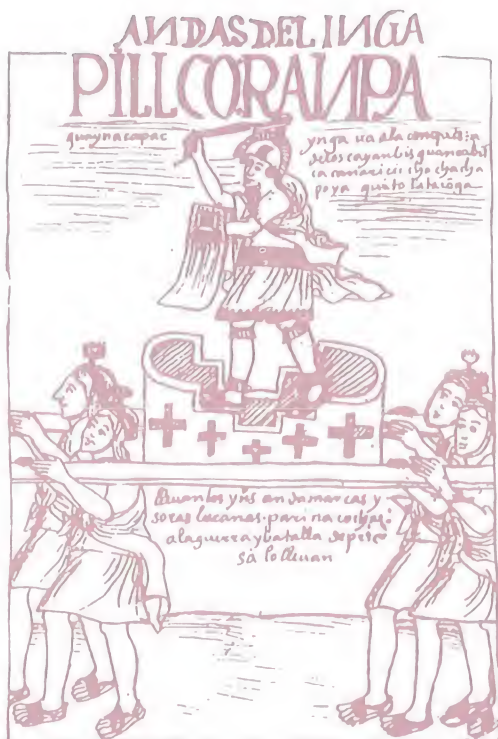 ANDAS DEL INGA
PILLCORANPA
guaynacapac
ynga ua a la conquista
de los cayanbis guancabil
ca canari ciccho chacha
poya quito latacōga
lleuan los yn̄s andamarcas y
soras lucanas parinacochas
a la guerra y batalla de prie
sa lo lleuan